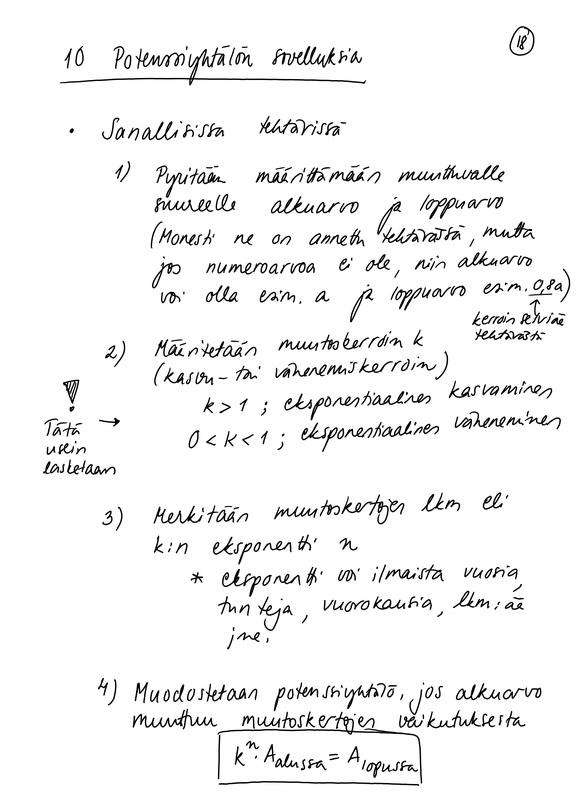 18
10 Potenssiyhtälön sovelluksia
• Sanallisissa tehtävissä
1) Pyritään määrittämään muuttuvalle
suureelle alkuarvo ja loppuarvo
(Monesti ne on annettu tehtävässä, mutta
jos numeroarvoa ei ole, niin alkuarvo
voi olla esim. a ja loppuarvo esim. 0,8a)
↑
kerroin selviää
tehtävästä
2) Määritetään muutoskerroin k
(kasvu- tai vähenemiskerroin)
k > 1 ; eksponentiaalinen kasvaminen
0 < k < 1 ; eksponentiaalinen väheneminen
!
Tätä →
usein
lasketaan
3) Merkitään muutoskertojen lkm eli
k:n eksponentti n
* eksponentti voi ilmaista vuosia,
tunteja, vuorokausia, lkm:ää
jne.
4) Muodostetaan potenssiyhtälö, jos alkuarvo
muuttuu muutoskertojen vaikutuksesta
kⁿ · A alussa = A lopussa